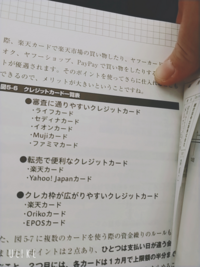 際、楽天カードで楽天市場の買い物したり、ヤフーオー
オク、ヤフーショップ、PayPayで買い物をしたりする
が優遇されます。そのポイントを使ってさらに仕入
できるので、メリットが大きいということですね。
図5-6 クレジットカード一覧表
●審査に通りやすいクレジットカード
・ライフカード
・セディナカード
・イオンカード
・Mujiカード
・ファミマカード
●転売で便利なクレジットカード
・楽天カード
・Yahoo! Japanカード
●クレカ枠が広がりやすいクレジットカード
・楽天カード
・Oricoカード
・EPOSカード
た、図5-7に複数のカードを使う際の資金繰りのルールも
ポイントは2点あり、ひとつは支払い日が違う
こと。2つ目には、各カードは1カ月で上限額の半分ま